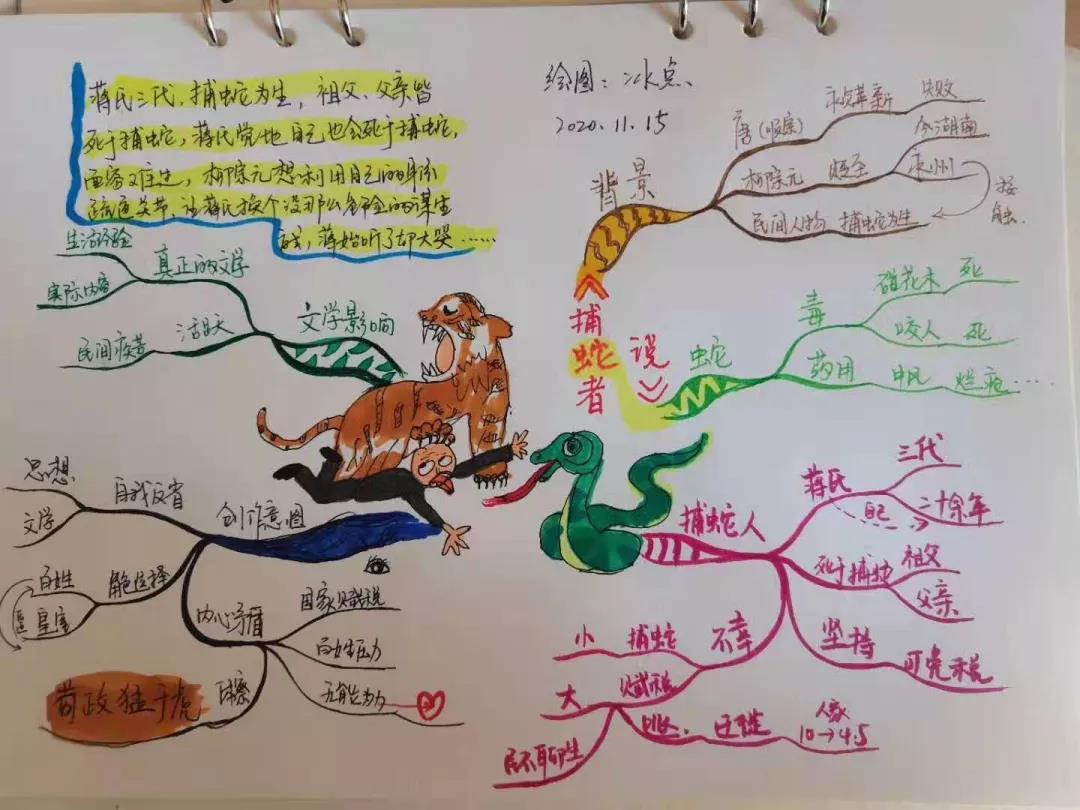 蒋氏三代,捕蛇为生,祖父、父亲皆
死于捕蛇,蒋氏觉地自己也会死于捕蛇,
面容难过,柳宗元想利用自己的身份
疏通关节,让蒋氏换个没那么危险的谋生
蒋始听了却大哭……
绘图:冰点
2020.11.15
捕蛇者
说
背景
唐(顺宗)
永贞革新
失败
柳宗元
贬至
永州
今湖南
民间人物
捕蛇为生
接触
蛇
毒
碰花木
死
咬人
死
药用
中风
烂疮…
捕蛇人
蒋氏
三代
自己
二十余年
死于捕蛇
祖父
父亲
坚持
可免税
不幸
小
捕蛇
大
赋税
民不聊生
迁徙
人家
10→4.5
创作意图
自我反省
思想
文学
角色选择
百姓
皇室
内心矛盾
国家赋税
百姓压力
无能为力
苛政猛于虎
文学影响
真正的文学
生活经验
实际内容
活跃
民间疾苦